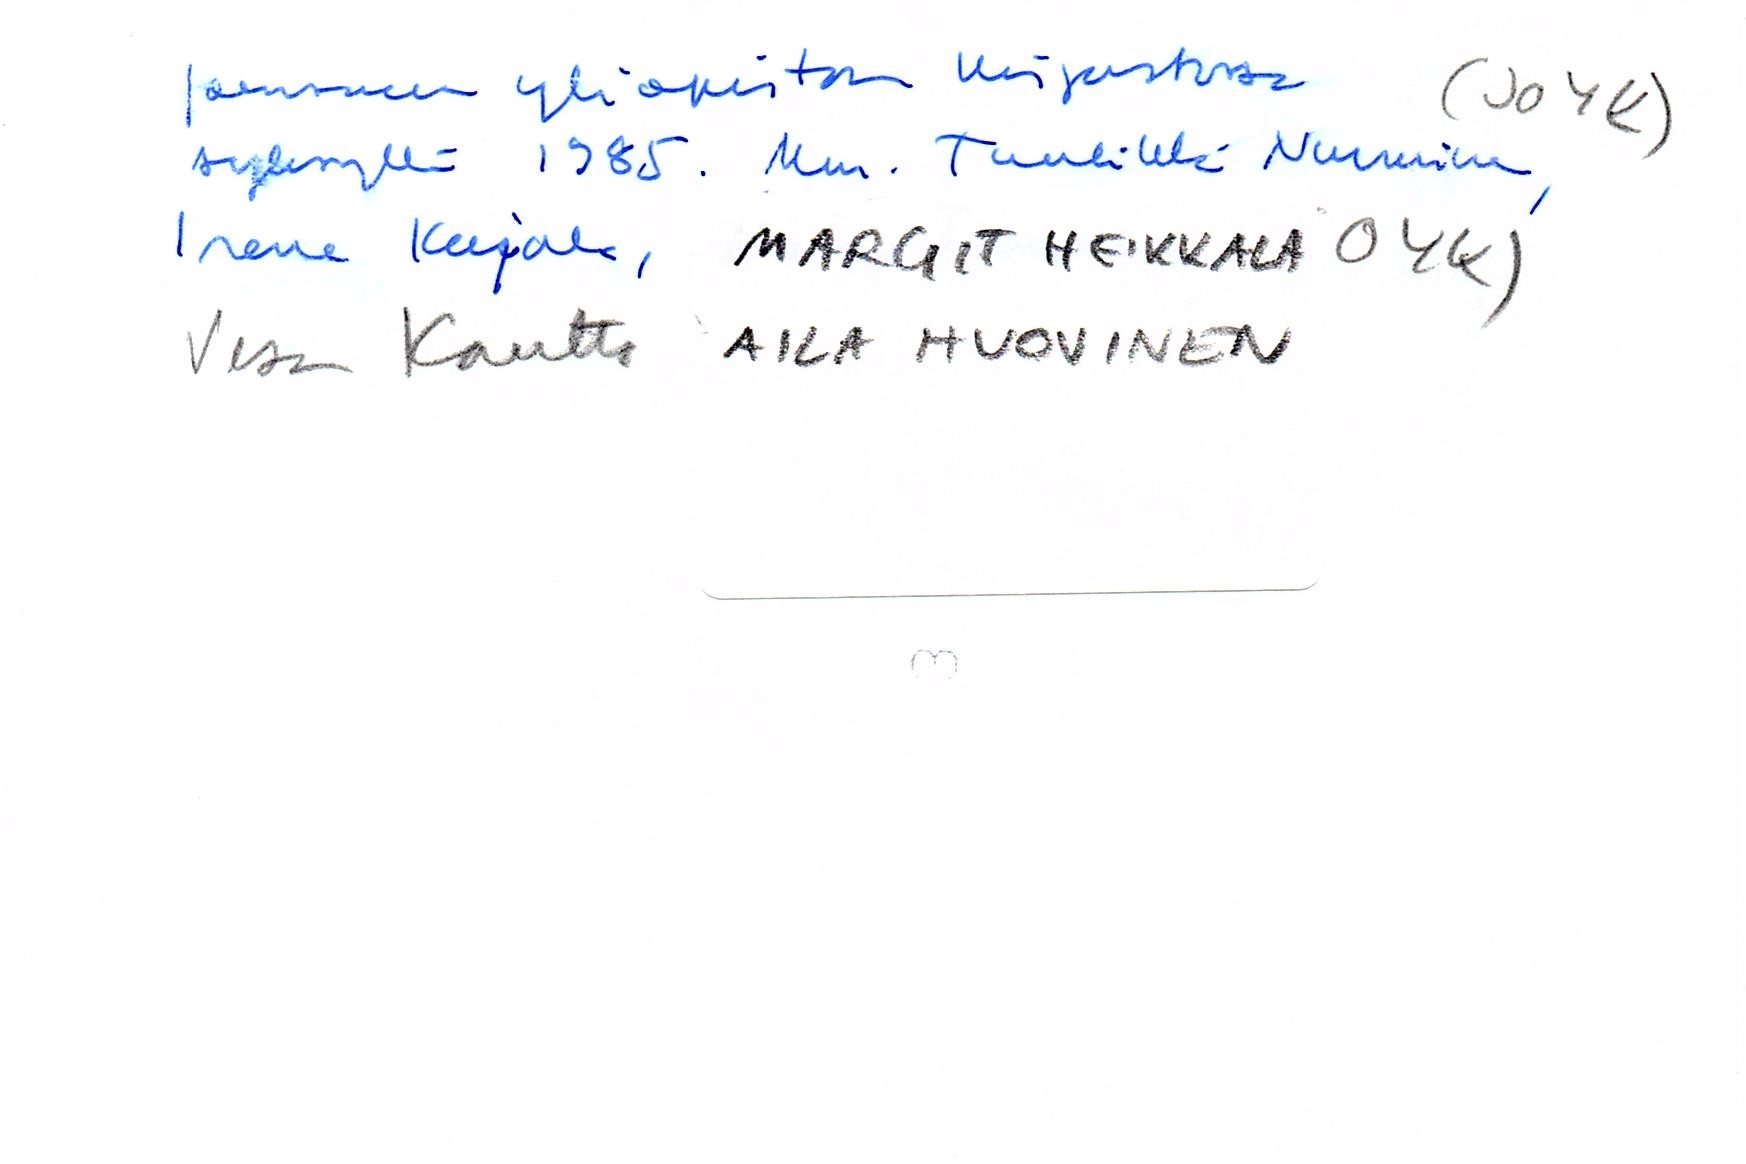 Joensuun yliopiston kirjastossa (JOYK)
syksyllä 1985. Mm. Tuulikki Nurminen,
Irene Kujala, MARGIT HEIKKALA OYK)
Vesa Kautto AILA HUOVINEN
3